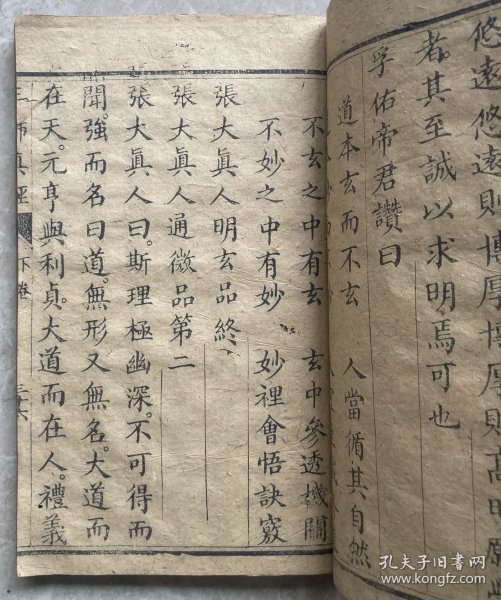 悠遠悠遠則博厚博厚則高明
者其至誠以求明焉可也
孚佑帝君讚曰
道本玄而不玄 人當循其自然
不玄之中有玄 玄中參透機關
不妙之中有妙 妙裡會悟訣竅
張大眞人明玄品終
張大眞人通微品第二
張大眞人曰。斯理極幽深。不可得而
聞。強而名曰道。無形又無名。大道而
在天。元亨與利貞。大道而在人。禮義
三師眞經 下卷 三十六
孔夫子旧书网
www.kongfz.com